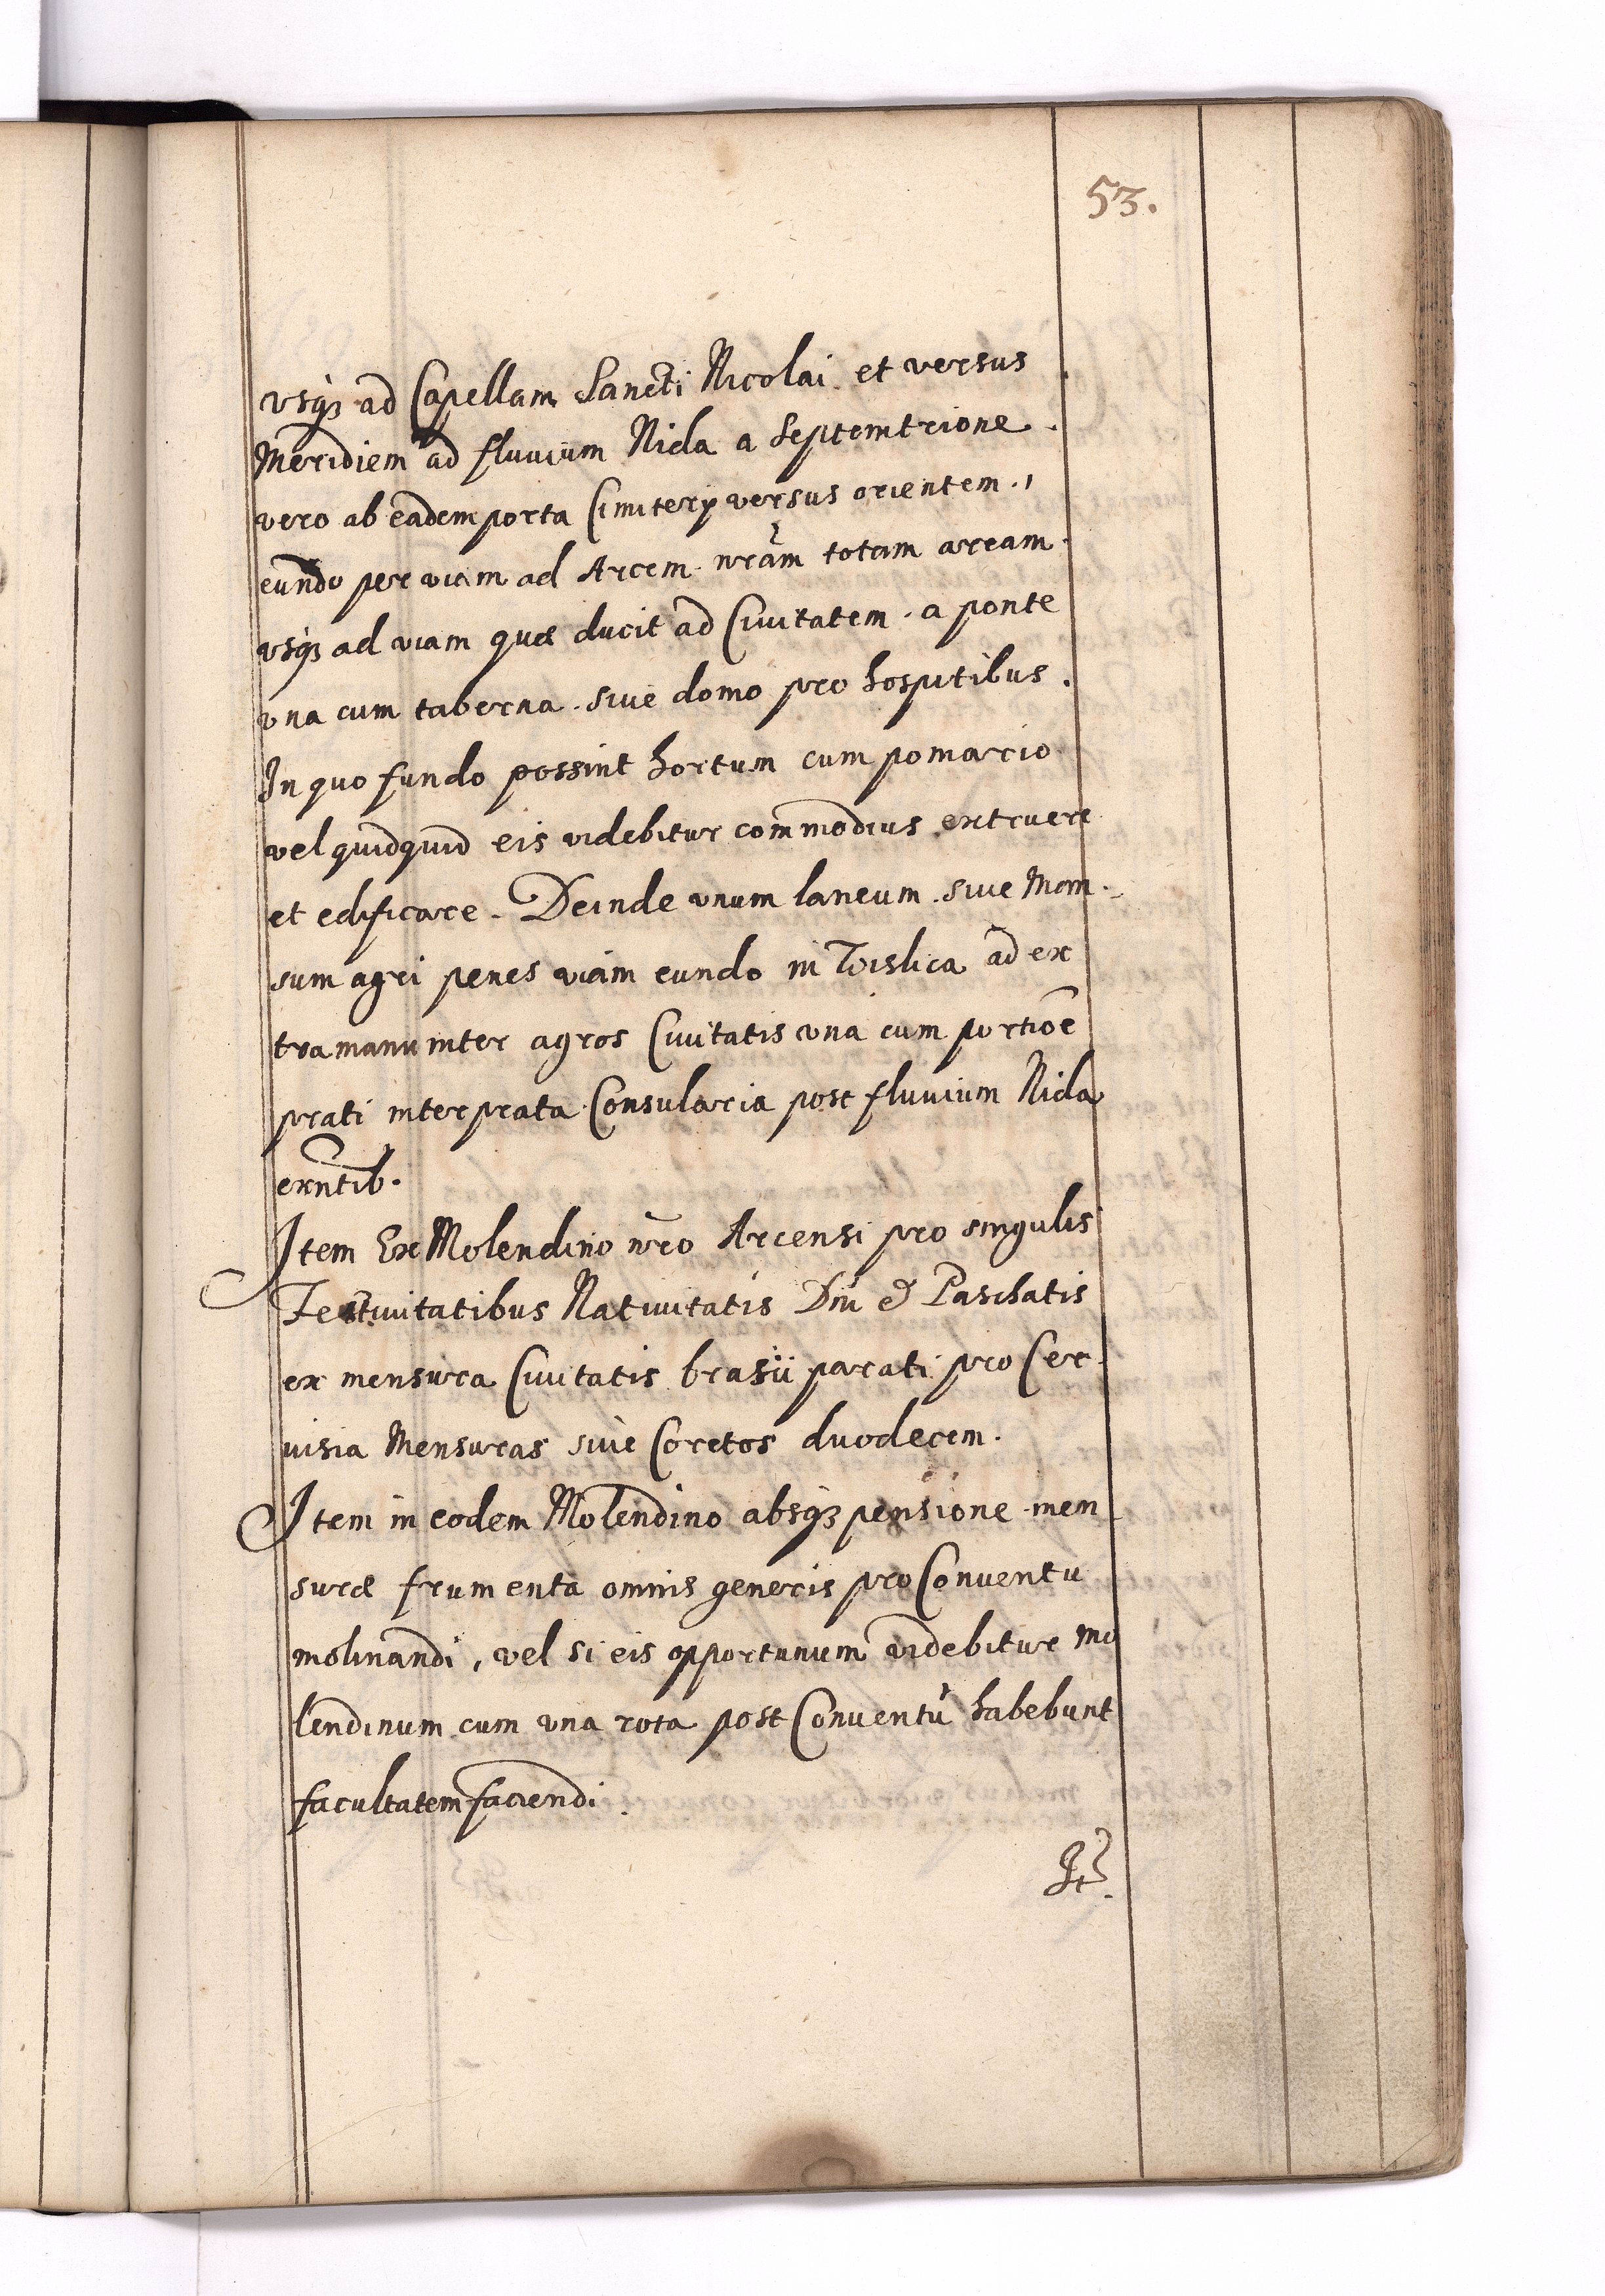 53.
vsq₃ ad Capellam Sancti Nicolai et versus
Meridiem ad fluuium Nida a Septemtrione.
vero ab eadem porta Cimitery versus orientem.,
eundo per viam ad Arcem nram totam aream.
vsq₃ ad viam quæ ducit ad Ciuitatem. a ponte
vna cum taberna. siue domo pro hospitibus.
In quo fundo possint hortum cum pomario
vel quidquid eis videbitur commodius extruere
et edificare. Deinde vnum laneum. siue Mam-
sum agri penes viam eundo in Toislica ad ex
tramanum inter agros Ciuitatis vna cum portioe
prati inter prata Consularia post fluuium Nida
exntib.
Item Ex Molendino nro Arcensi pro singulis
Festiuitatibus Natiuitatis Dni & Paschatis
ex mensura Ciuitatis brasii parati pro Cer-
uisia Mensuras siue Coretos duodecem.
Item in eodem Molendino absq₃ pensione men-
suræ frumenta omnis generis pro Conuentu
molinandi, vel si eis opportunum videbitur mo
lendinum cum vna rota post Conuentū habebunt
facultatem faciendi.
It.